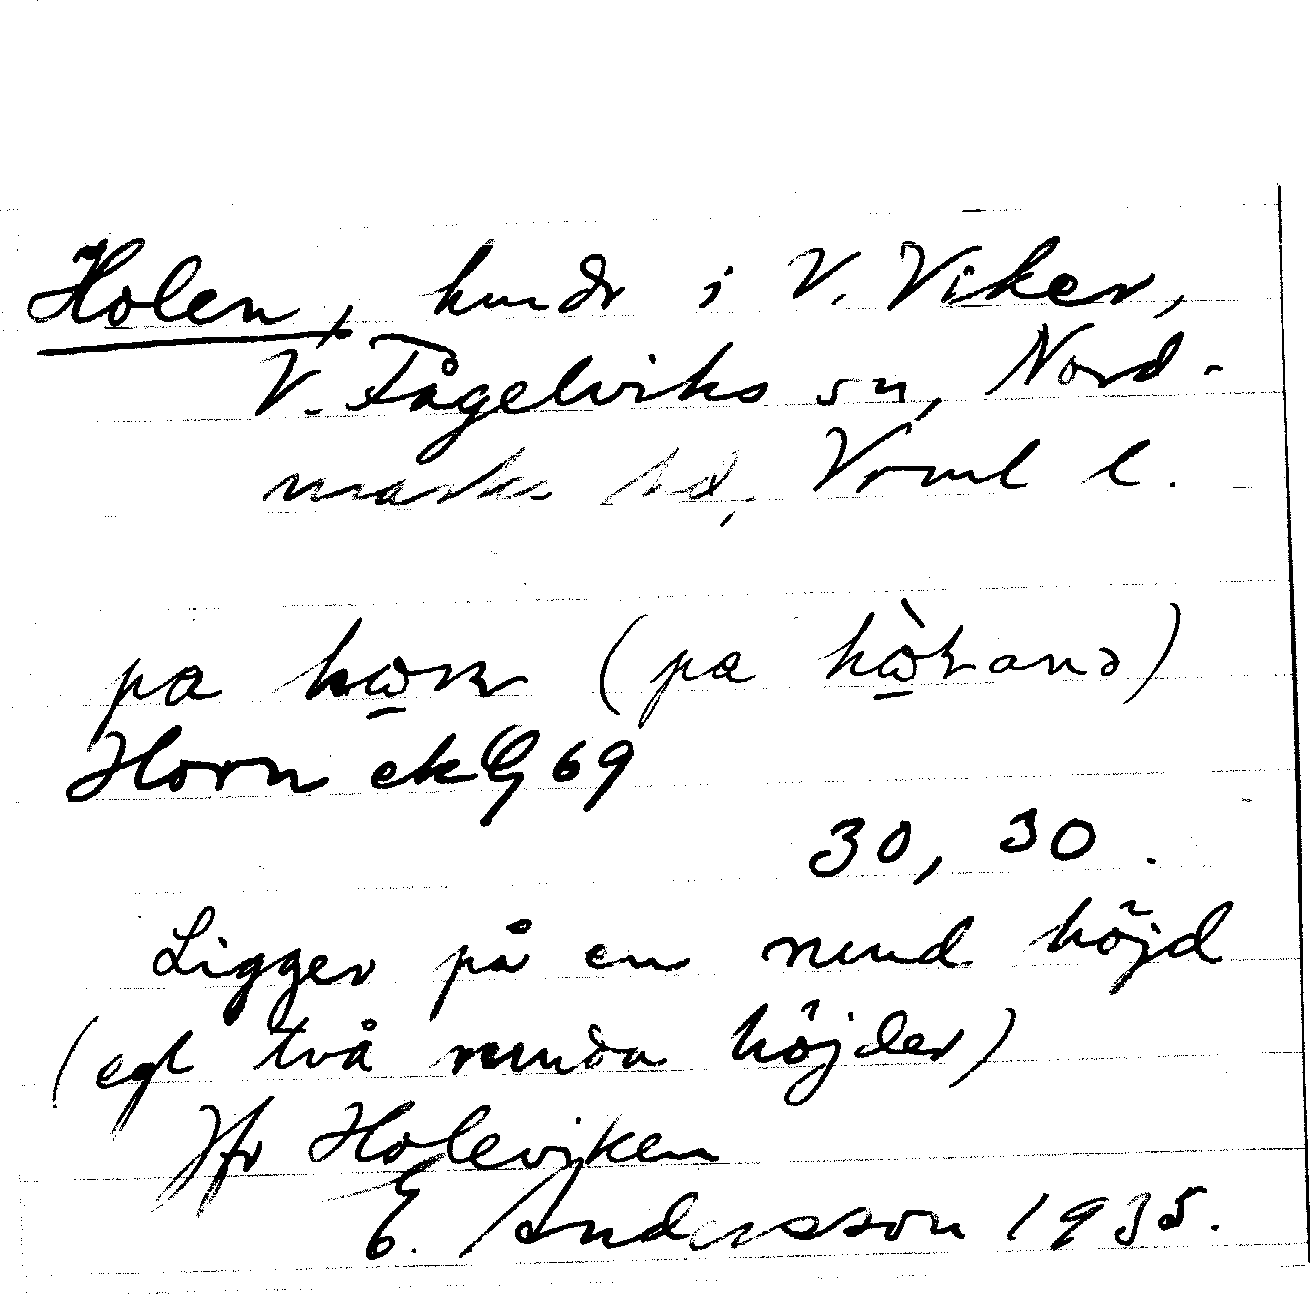 Holen, hmdr i V. Viker,
V. Fågelviks sn, Nord-
marks hd, Vrml l.
pa
(pa
Horn ekG 69
30, 30.
Ligger på en rund höjd
(egl två runda höjder)
Jfr Holeviken
E. Andersson 1935.